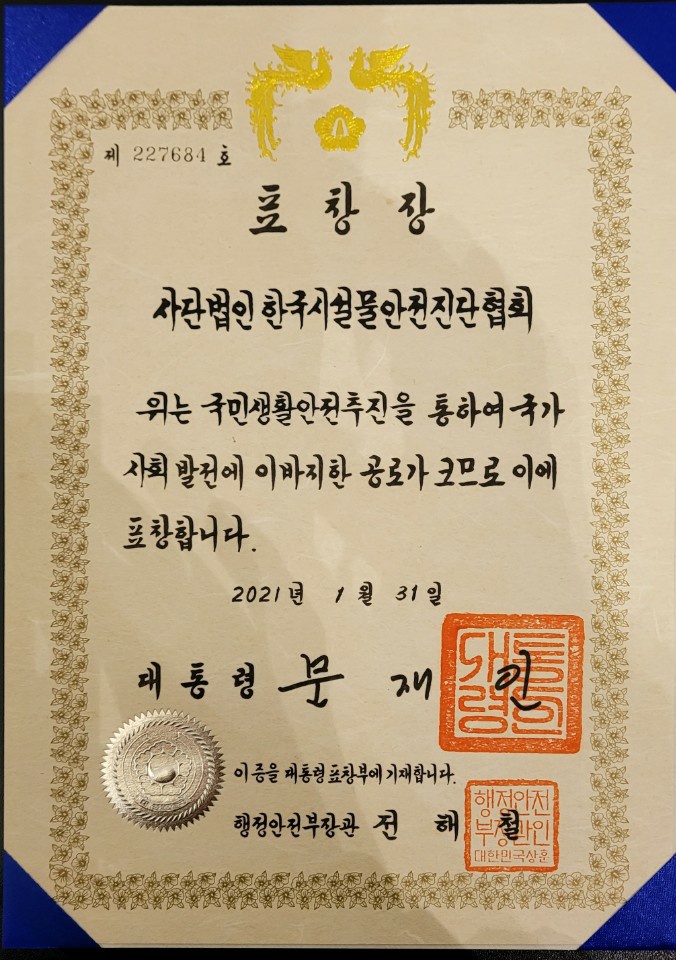 제 227684 호
표창장
사단법인 한국시설물안전진단협회
위는 국민생활안전추진을 통하여 국가
사회 발전에 이바지한 공로가 크므로 이에
표창합니다.
2021년 1월 31일
대통령 문재인
대통령의인
이 증을 대통령 표창부에 기재합니다.
행정안전부장관 전해철
행정안전
부장관인
대한민국상훈